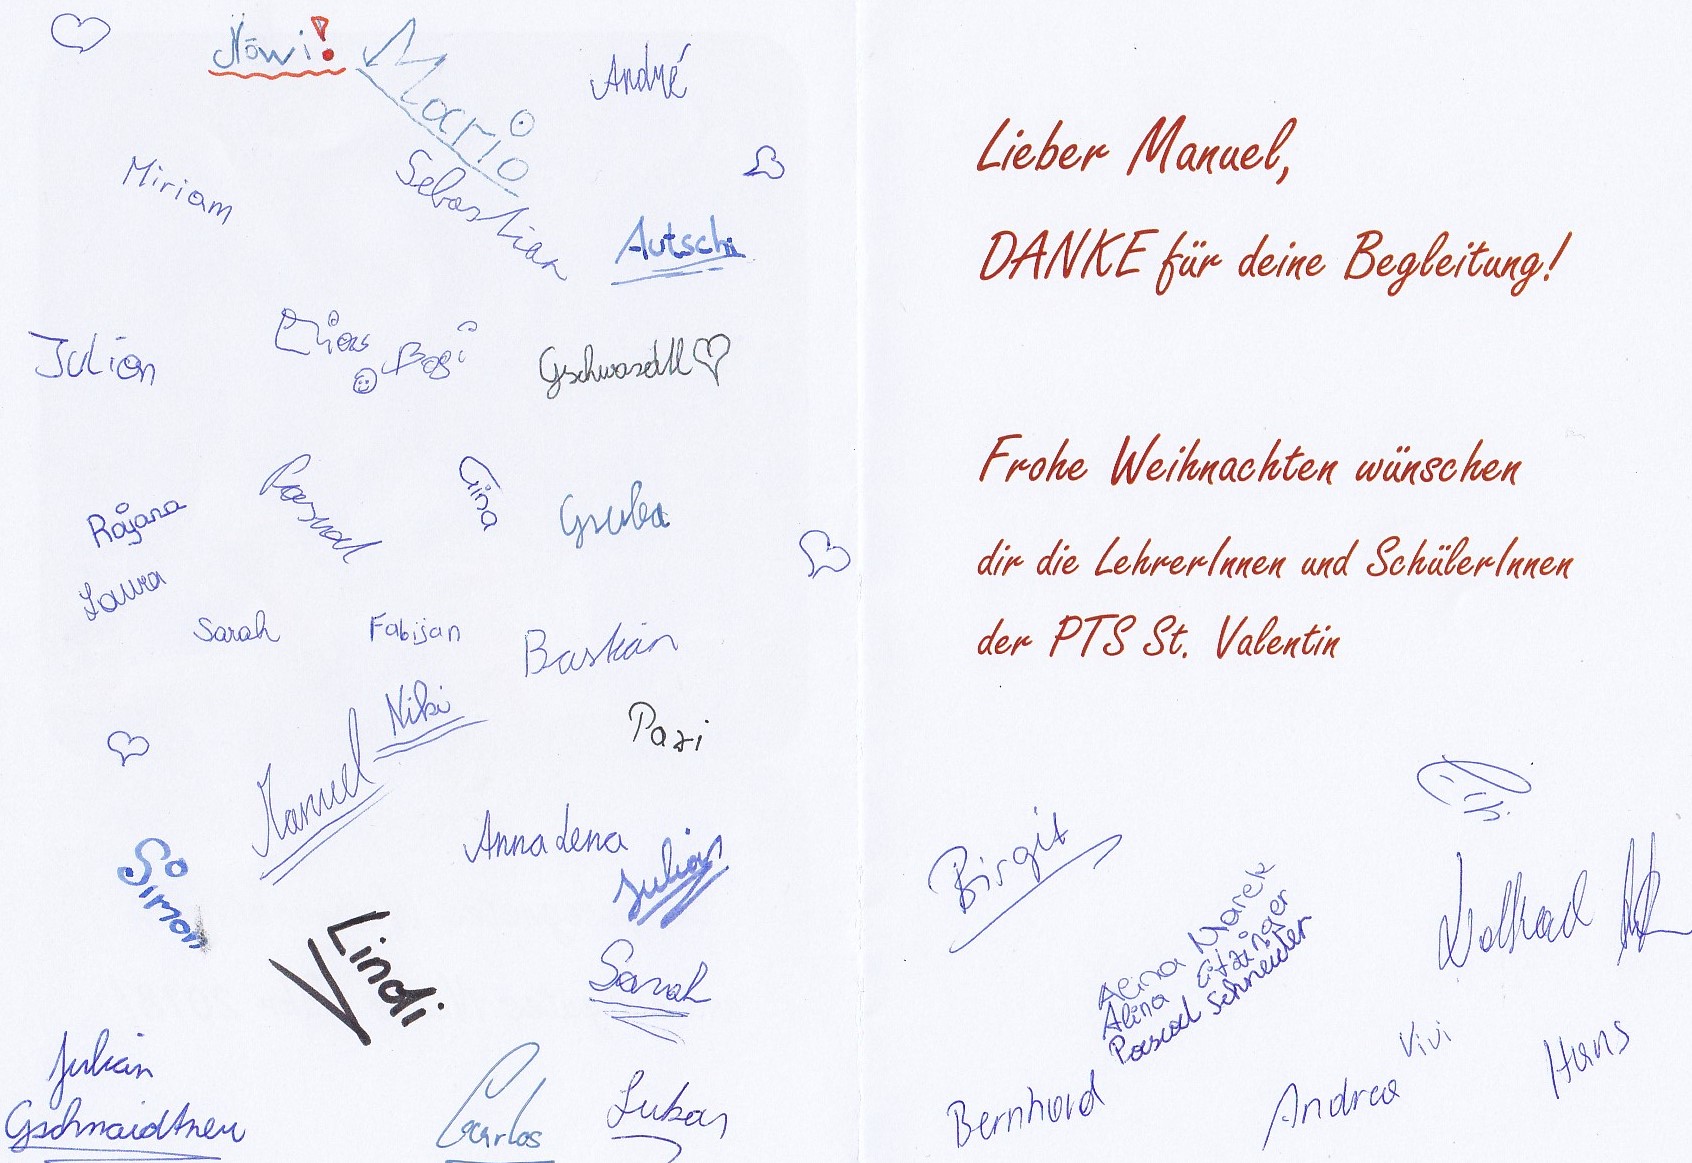 Nöwi!
Mario
André
Miriam
Sebastian
Autschi
Julian
Elias
Bogi
Gschwandtl
Rojana
Pascal
Gina
Laura
Sarah
Fabijan
Bastian
Niki
Pazi
Manuel
AnnaLena
Julian
Simon
Lindi
Sarah
Julian
Gschnaidtner
Carlos
Lukas
Lieber Manuel,
DANKE für deine Begleitung!
Frohe Weihnachten wünschen
dir die LehrerInnen und SchülerInnen
der PTS St. Valentin
Birgit
Alina Marek
Alina Etzinger
Pascal Schneider
Vivi
Bernhard
Andrea
Hans